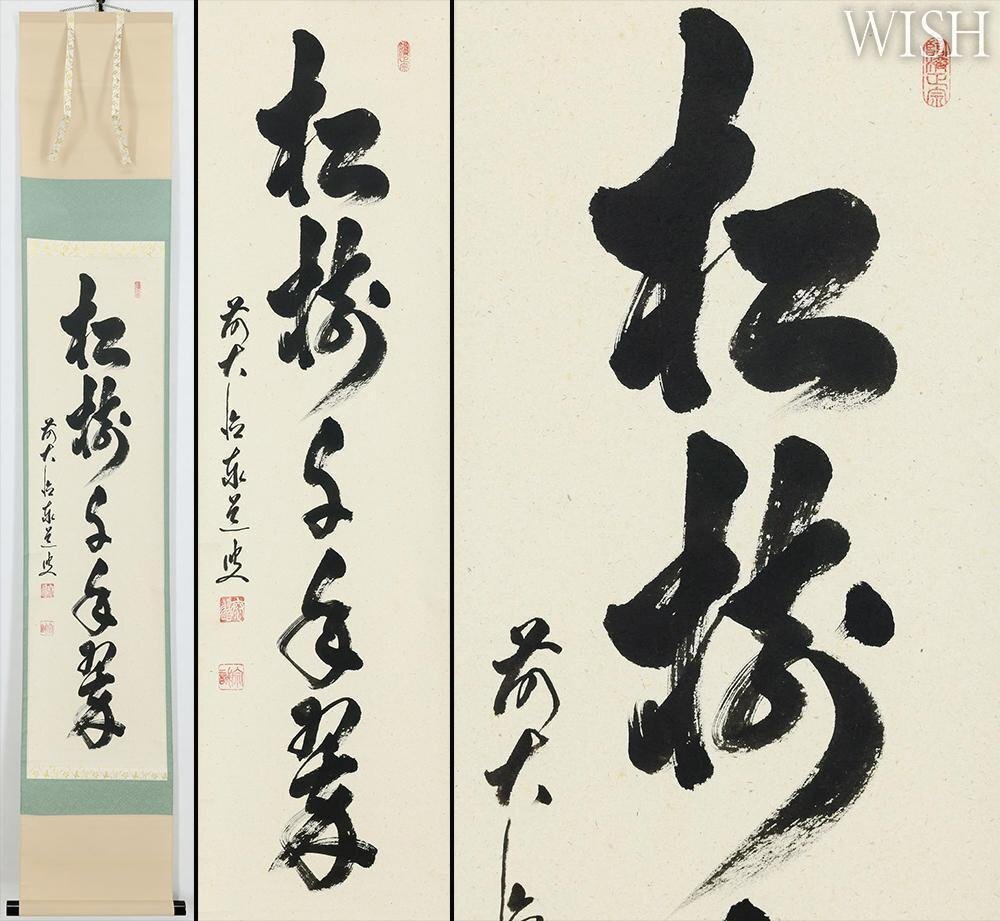 松樹千年翠
前大徳泰道叟
WISH